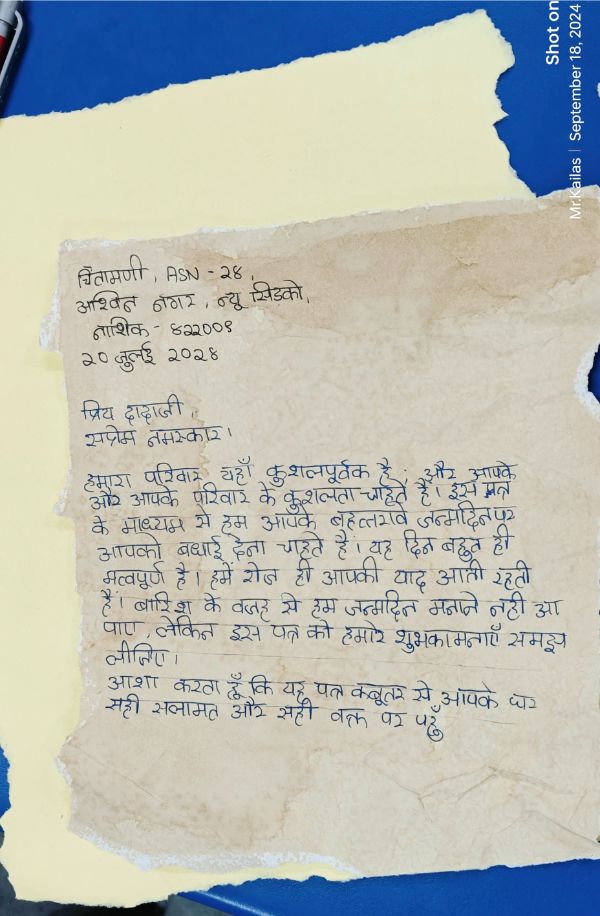 चिंतामणी, ASN - २८,
अश्विन नगर, न्यू सिडको,
नाशिक - ४२२००९
२० जुलई २०२४
प्रिय दादाजी,
सप्रेम नमस्कार।
हमारा परिवार यहाँ कुशलपूर्वक है, और आपके
और आपके परिवार के कुशलता चाहते है। इस पत्र
के माध्यम से हम आपके बहत्तरावे जन्मदिन पर
आपको बधाई देना चाहते है। यह दिन बहुत ही
मत्वपूर्ण है। हमें रोज ही आपकी याद आती रहती
है। बारिश के वजह से हम जन्मदिन मनाने नही आ
पाए, लेकिन इस पत्र को हमारे शुभकामनाएँ समझ
लीजिए।
आशा करता हूँ कि यह पत्र कबूतर से आपके घर
सही सलामत और सही वक्त पर पहूँ
Shot on
Mr.Kailas | September 18, 2024